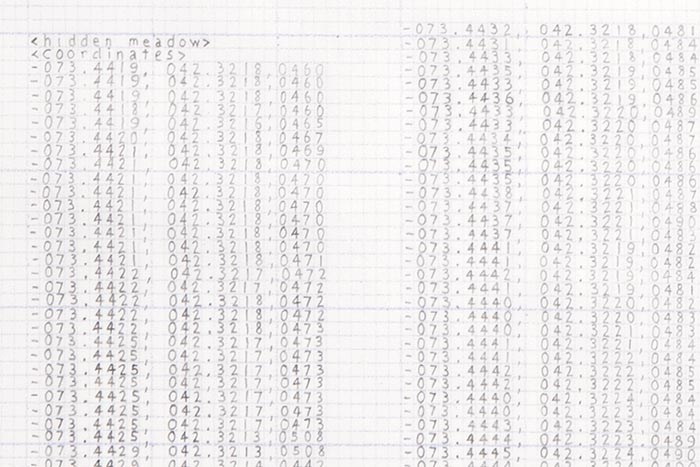 <hidden meadow>
<coordinates>
-073.4419, 042.3218,0460
-073.4419, 042.3218,0460
-073.4419, 042.3218,0460
-073.4418, 042.3217,0460
-073.4419, 042.3218,0465
-073.4420, 042.3218,0467
-073.4421, 042.3218,0469
-073.4421, 042.3218,0470
-073.4421, 042.3218,0470
-073.4421, 042.3218,0470
-073.4421, 042.3218,0470
-073.4421, 042.3218,0470
-073.4421, 042.3218,0470
-073.4421, 042.3218,0470
-073.4421, 042.3218,0471
-073.4422, 042.3217,0472
-073.4422, 042.3217,0472
-073.4422, 042.3218,0472
-073.4422, 042.3218,0472
-073.4422, 042.3218,0473
-073.4425, 042.3217,0473
-073.4425, 042.3217,0473
-073.4425, 042.3217,0473
-073.4425, 042.3217,0473
-073.4425, 042.3217,0473
-073.4425, 042.3217,0473
-073.4425, 042.3217,0473
-073.4425, 042.3213,0508
-073.4429, 042.3213,0508
-073.4432, 042.3218,0481
-073.4431, 042.3218,0484
-073.4433, 042.3218,0484
-073.4435, 042.3219,0485
-073.4433, 042.3219,0486
-073.4436, 042.3219,0486
-073.4433, 042.3220,0485
-073.4433, 042.3220,0487
-073.4434, 042.3220,0487
-073.4435, 042.3220,0486
-073.4435, 042.3220
-073.4435, 042.3220
-073.4438, 042.3221
-073.4437, 042.3221
-073.4437, 042.3221
-073.4437, 042.3221
-073.4441, 042.3219,0482
-073.4441, 042.3219
-073.4442, 042.3219
-073.4441, 042.3219
-073.4440, 042.3220
-073.4440, 042.3220
-073.4440, 042.3221
-073.4441, 042.3221
-073.4441, 042.3221
-073.4442, 042.3222
-073.4440, 042.3222
-073.4440, 042.3223
-073.4440, 042.3224
-073.4443, 042.3223
-073.4444, 042.3223
-073.4445, 042.3224